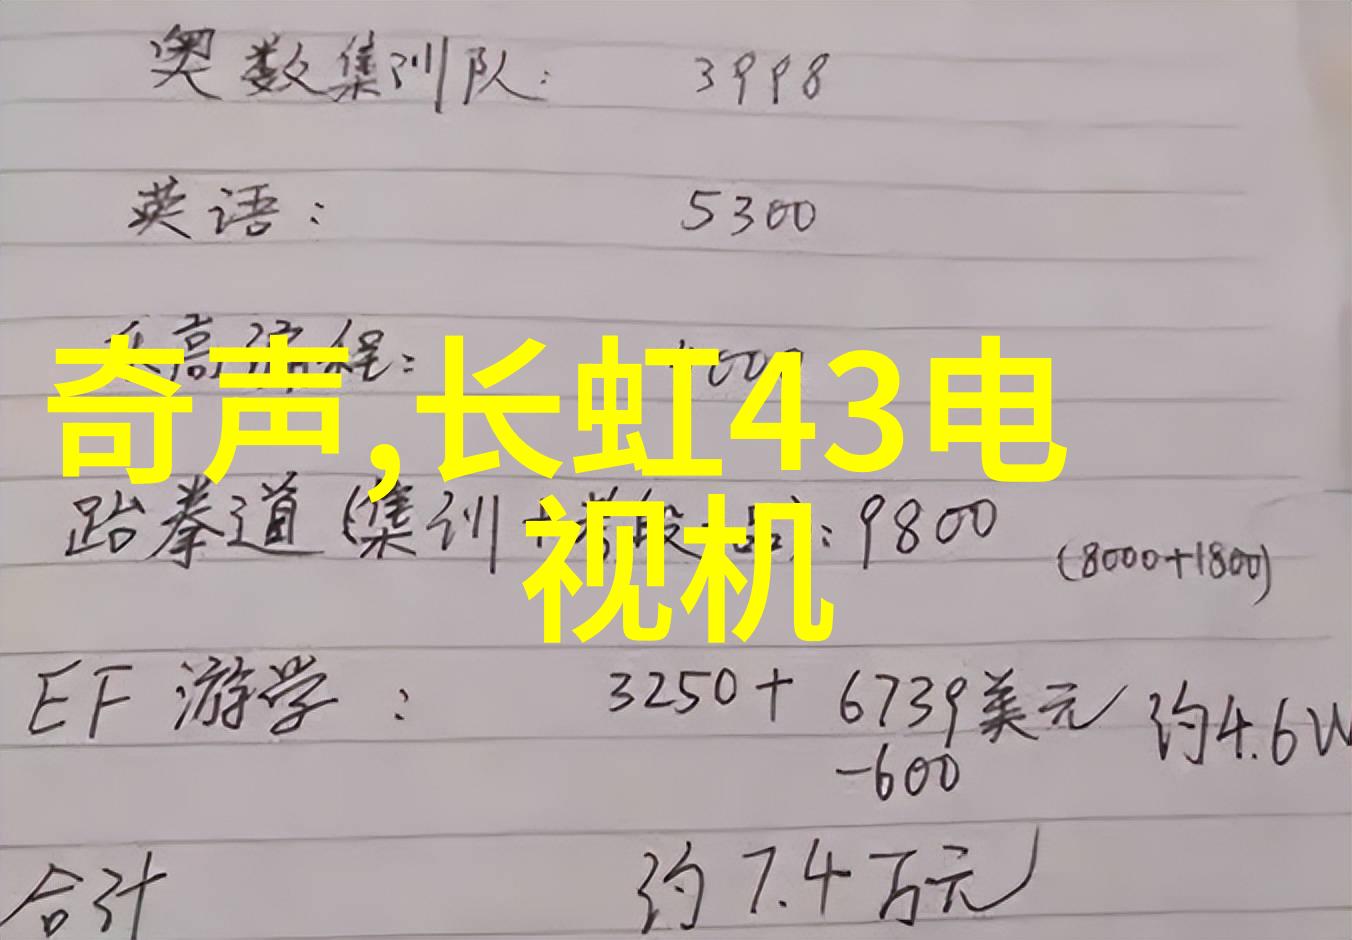 奥数集训队: 3998
英语: 5300
高课程:
奇声,长虹43电
视机
跆拳道(集训+考段 : 9800 (8000+1800)
EF 游学: 3250+ 6739美元 约4.6W
-600
合计 约7.4万元